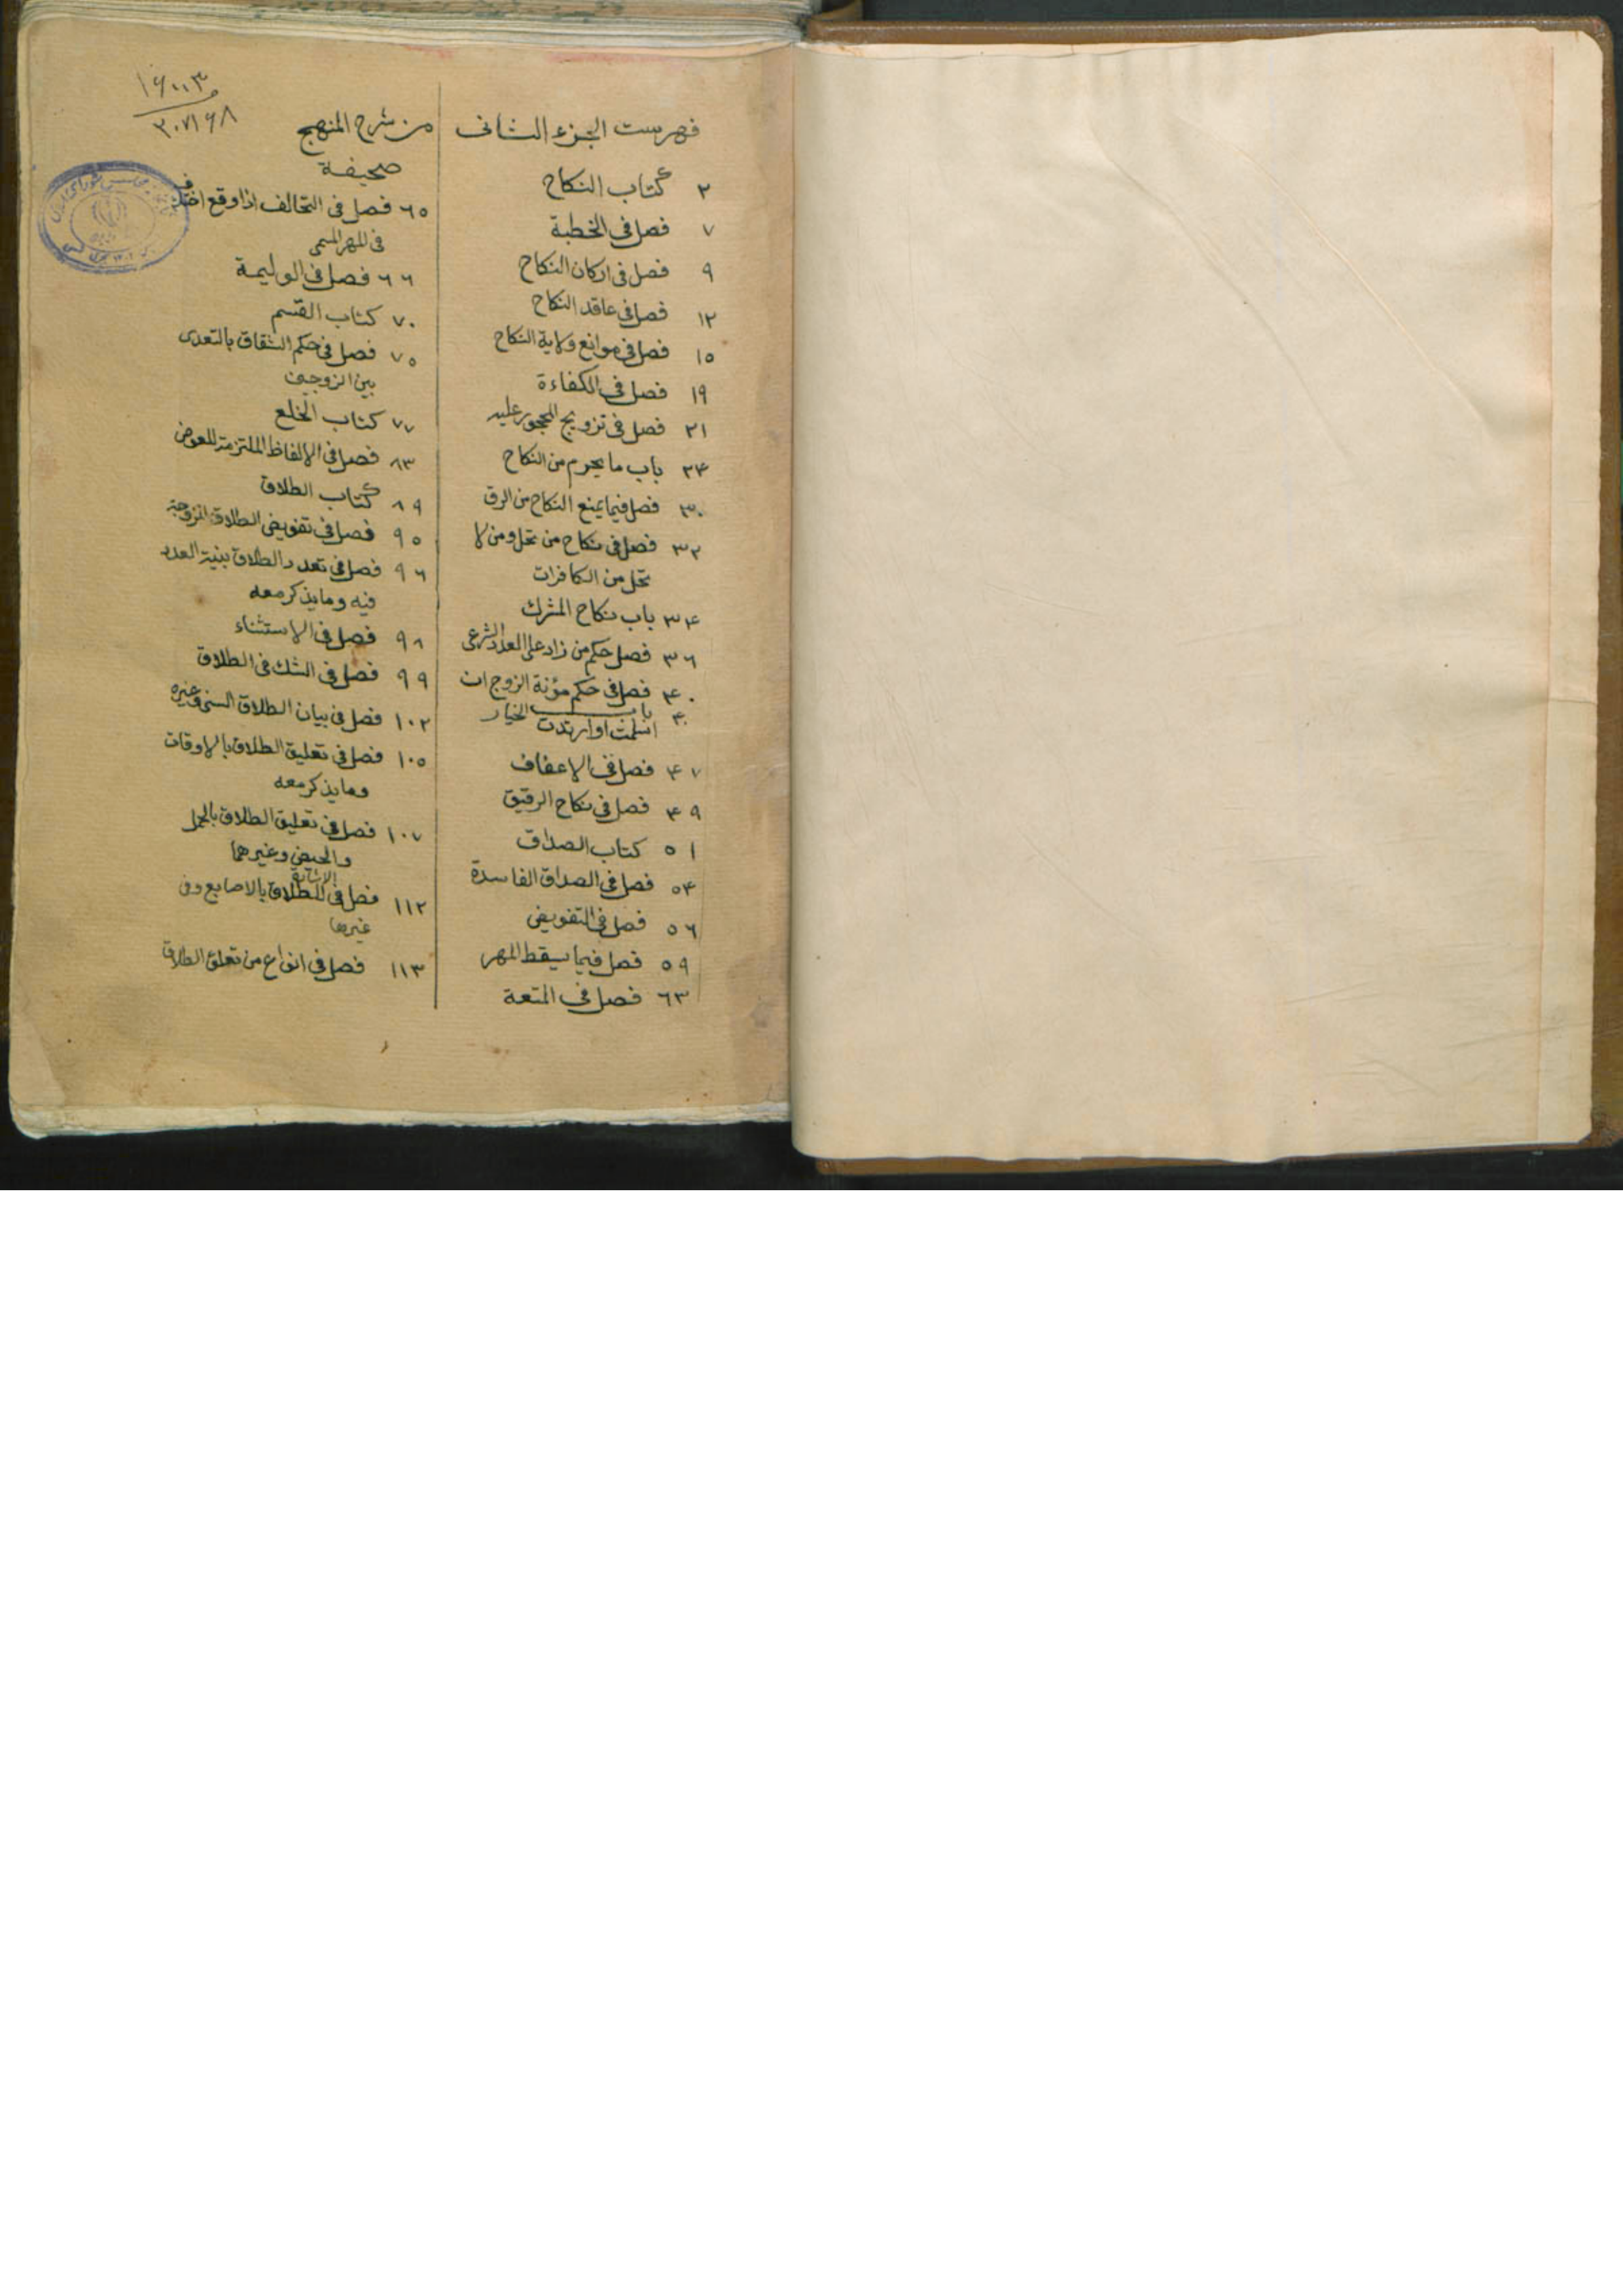 فهرست الجزء الثانى من شرح المنهج
٢ كتاب النكاح
٧ فصل فى الخطبة
٩ فصل فى اركان النكاح
١٢ فصل فى عاقد النكاح
١٥ فصل فى موانع ولاية النكاح
١٩ فصل فى الكفاءة
٢١ فصل فى تزويج المحجور عليه
٢۴ باب ما يحرم من النكاح
٣٠ فصل فيما يمنع النكاح من الرق
٣٢ فصل فى نكاح من تحل ومن لا
تحل من الكافرات
٣۴ باب نكاح المشرك
٣٦ فصل حكم من زاد على العدد الشرعى
۴٠ فصل فى حكم مؤنة الزوج ان
اسلمت او ارتدت
باب الخيار
۴٧ فصل فى الاعفاف
۴٩ فصل فى نكاح الرقيق
٥١ كتاب الصداق
٥۴ فصل فى الصداق الفاسدة
٥٦ فصل فى التفويض
٥٩ فصل فيما يسقط المهر
٦٣ فصل فى المتعة
١۶٠٠٣
٣٠٧١۶٨
صحيفة
٦٥ فصل فى التحالف اذا وقع اختلاف
فى المهر المسمى
٦٦ فصل فى الوليمة
٧٠ كتاب القسم
٧٥ فصل فى حكم الشقاق بالتعدى
بين الزوجين
٧٧ كتاب الخلع
٨٣ فصل فى الالفاظ الملتزمة للعوض
٨٩ كتاب الطلاق
٩٥ فصل فى تفويض الطلاق للزوجة
٩٦ فصل فى تعدد الطلاق بنية العدد
فيه وما يذكر معه
٩٨ فصل فى الاستثناء
٩٩ فصل فى الشك فى الطلاق
١٠٢ فصل فى بيان الطلاق السنى وغيره
١٠٥ فصل فى تعليق الطلاق بالاوقات
وما يذكر معه
١٠٧ فصل فى تعليق الطلاق بالحمل
والحيض وغيرهما
١١٢ فصل فى الاشارة للطلاق بالاصابع وفى
غيرها
١١٣ فصل فى انواع من تعلق الطلاق